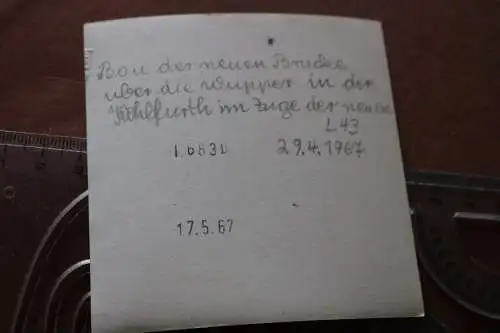 Bau der neuen Brücke
über die Wupper in der
Kohlfurth im Zuge der neuen
L43
29.4.1967
17.5.67